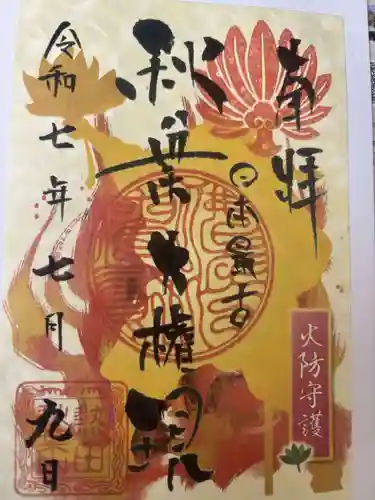 奉拝
日本最古
火防守護
秋葉大権現
令和七年七月
九日